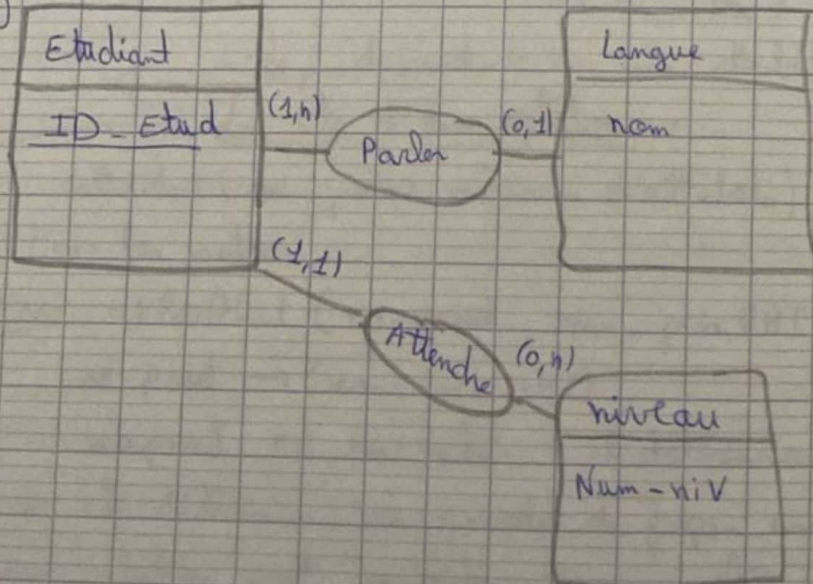 Etudiant
ID_Etud
(1,n)
Parler
(0,1)
Langue
nom
(1,1)
Attenche
(0,n)
niveau
Num-niV